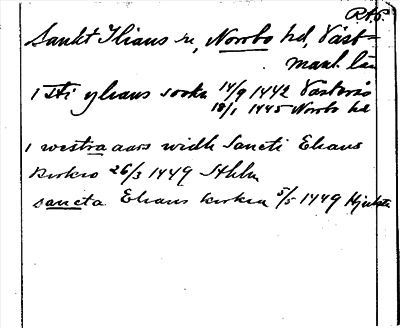 RAP.
Sankt Ilians sn, Norrbo hd, Väst=
manl. län
i Sti ylians sookn 14/9 1442 Västerås
18/1 1445 Norrbo hd
i westra aars widh Sancti Elians
kirkio 26/3 1449 Sthlm
sancta Elians kirkia 5/5 1449